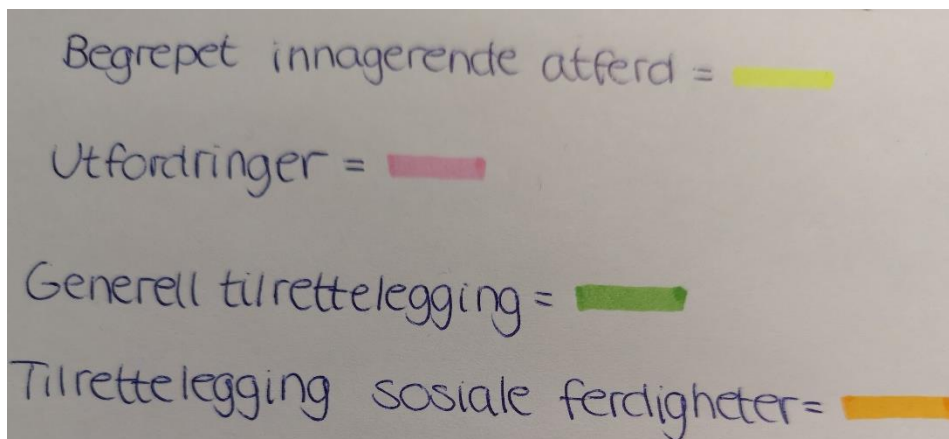 Begrepet innagerende atferd =
Utfordringer =
Generell tilrettelegging =
Tilrettelegging sosiale ferdigheter=